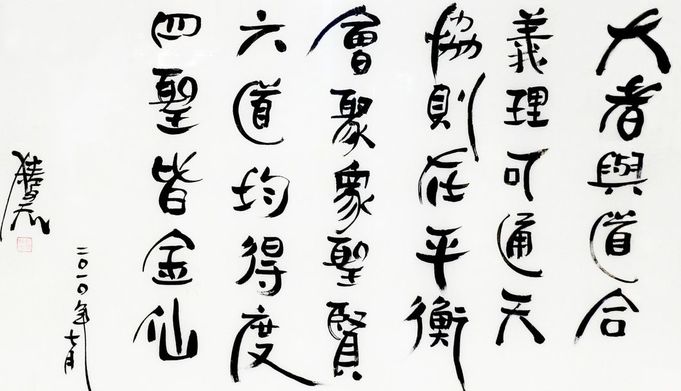 大者與道合
義理可通天
協則在平衡
會聚象聖賢
六道均得度
四聖皆金仙
二〇一〇年七月